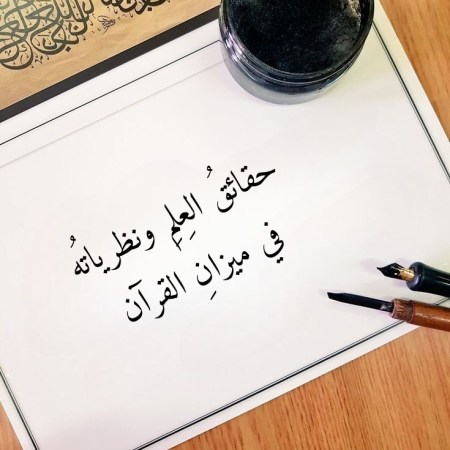 حقائقُ العِلمِ ونظرياتهُ
في ميزانِ القرآن